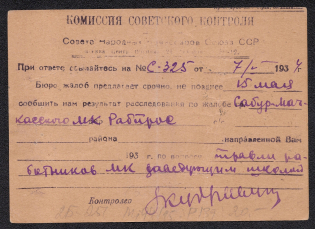 КОМИССИЯ СОВЕТСКОГО КОНТРОЛЯ
Совета Народных Комиссаров Союза ССР
При ответе ссылайтесь на № С-325 от 7/V 1934
Бюро жалоб предлагает срочно, не позднее 15 мая
сообщить нам результат расследования по жалобе
МК Рабпрос
района направленной Вам
193 г. по вопросу травли ра-
ботников МК заведующим школой
Контролер